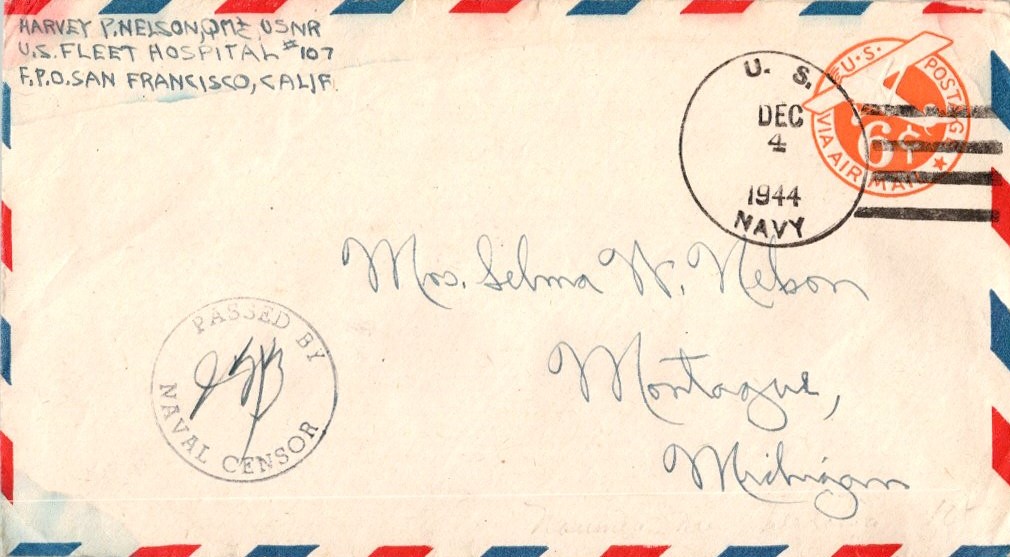 HARVEY P. NELSON, PM2 USNR
U.S. FLEET HOSPITAL #107
F.P.O. SAN FRANCISCO, CALIF.
U. S.
DEC
4
1944
NAVY
U.S. POSTAGE
6¢
VIA AIR MAIL
Mrs. Selma W. Nelson
Montague,
Michigan
PASSED BY
NAVAL CENSOR